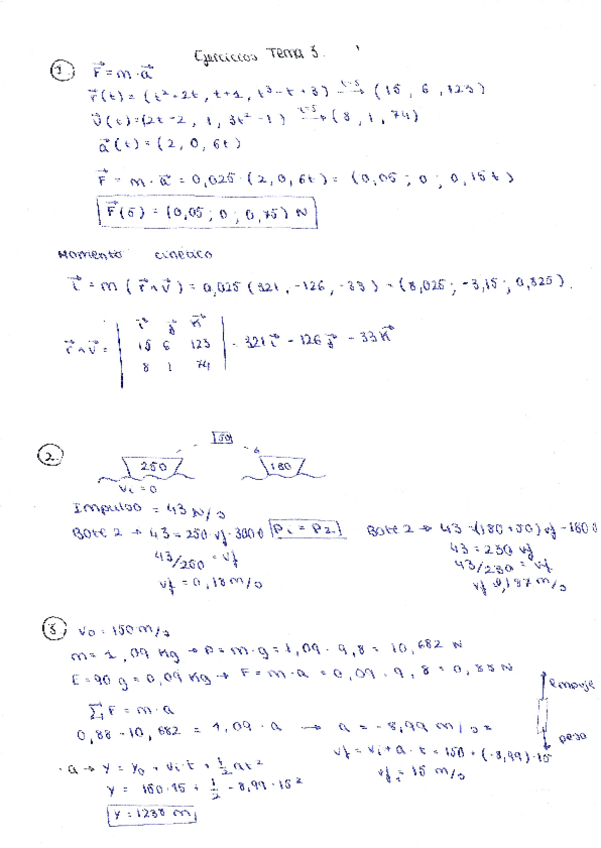 Ejercicios Tema 3.
1. F = m·a
r(t) = (t²-2t, t+1, t³-t+3) t=5→ (15, 6, 123)
v(t) = (2t-2, 1, 3t²-1) t=5→ (8, 1, 74)
a(t) = (2, 0, 6t)
F = m·a = 0,025·(2,0,6t) = (0,05; 0; 0,15t)
F(5) = (0,05; 0; 0,75) N
Momento cinético
= m (r∧v) = 0,025 (321, -126, -33) = (8,025; -3,15; 0,825).
i j k
r∧v = 15 6 123 = 321i - 126j - 33k
8 1 74
2. 50
250 180
Vi = 0
Impulso = 43 N/s
Bote 2 → 43 = 250 vf - 300·0 P1 = P2 Bote 2 → 43 = (180+50) vf - 180·0
43/250 = vf 43 = 230 vf
vf = 0,18 m/s 43/230 = vf
vf 0,187 m/s
3. Vo = 150 m/s
m = 1,09 kg → P = m·g = 1,09·9,8 = 10,682 N
E = 90 g = 0,09 kg → F = m·a = 0,09·9,8 = 0,88 N
empuje
∑F = m·a
0,88 - 10,682 = 1,09·a → a = -8,99 m/s²
peso
vf = vi + a·t = 150 + (-8,99)·15
·a → y = yo + vi·t + 1/2 at²
vf = 15 m/s
y = 150·15 + 1/2 - 8,99·15²
y = 1238 m